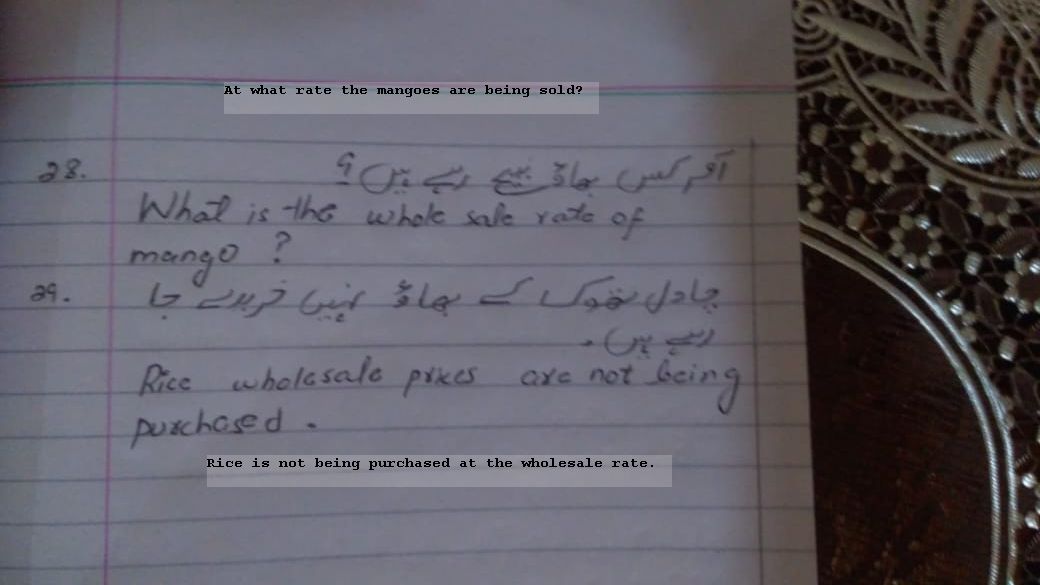 At what rate the mangoes are being sold?
28. آم کس بھاؤ بیچے رہے ہیں؟
What is the whole sale rate of
mango ?
29. چاول تھوک کے بھاؤ نہیں خریدے جا
رہے ہیں۔
Rice wholesale prices are not being
purchased .
Rice is not being purchased at the wholesale rate.